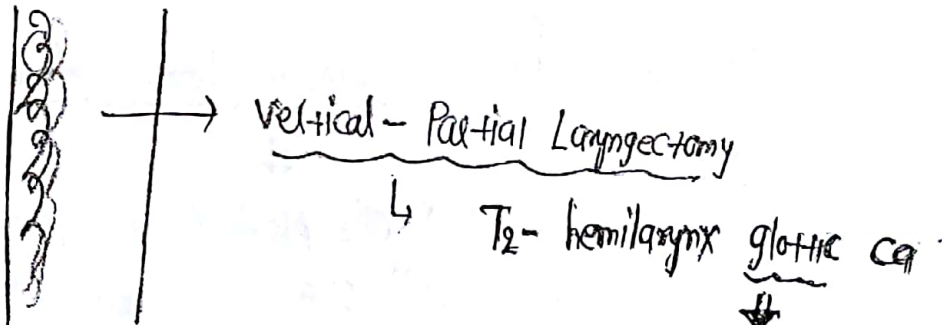 → Vertical - Partial Laryngectomy
↳ T₂ - hemilarynx glottic ca
⇓